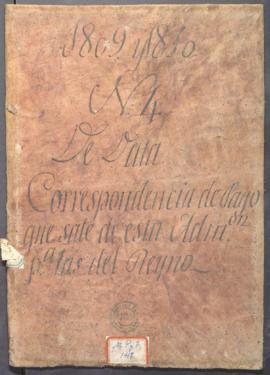 1809 y 1810
N. 4
De Data
Correspondencia de
que sale de esta Adm.on
p.a las del Reyno